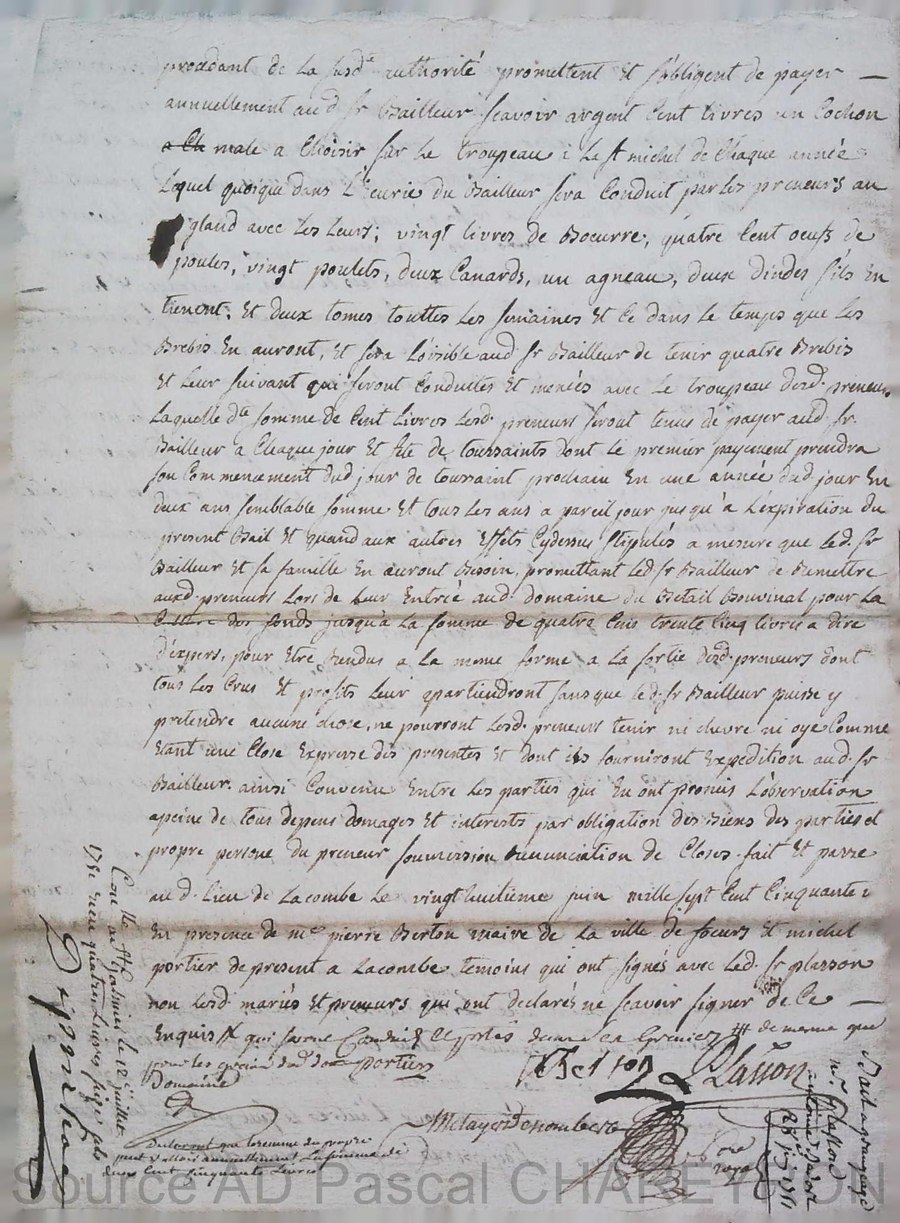 procedant de la susd.e authorité promettent et s'obligent de payer —
annuellement aud sr Bailleur scavoir argent cent livres un Cochon
male a choisir sur le troupeau a la st michel de chaque année
lequel quoique dans l'Ecurie du Bailleur sera Conduit par les preneurs au
gland avec les leurs; vingt livres de Boeurre, quatre cent oeufs de
poules, vingt poulets, deux Canards, un agneau, deux dindes s'ils en
tienent, et deux tomes touttes les semaines et ce dans le temps que les
Brebis en auront, et sera loisible aud sr Bailleur de tenir quatre Brebis
et leur suivant qui seront conduites et menées avec le troupeau desd. preneurs
laquelle dte somme de cent livres lesd. preneurs seront tenus de payer aud. sr.
Bailleur a chaque jour et fête de toussaints dont le premier payement prendra
son Commencement dud jour de toussaint prochain en une année dud jour en
deux ans semblable somme et tous les ans a pareil jour jusqu'à l'expiration du
present Bail et quand aux autres Effets cydessus stipulés a mesure que led. sr
Bailleur et sa famille en auront Besoin, promettant led. sr Bailleur de Remettre
auxd. preneurs lors de leur entrée aud. domaine du Betail Bouvinal pour la
Culture des fonds jusqu'à la somme de quatre cens trente cinq livres a dire
d'expers, pour etre rendus a la meme forme a la sortie desd. preneurs dont
tous les crus et profits leur apartiendront sans que led. sr Bailleur puisse y
pretendre aucune chose, ne pourront lesd. preneurs tenir ni chevre ni oye Comme
etant une Close expresse des presentes et dont ils fourniront Expedition aud. sr
Bailleur. ainsi Convenu Entre les parties qui en ont promis l'observation
apeine de tous depens domages et interests par obligation des Biens des parties et
propre persone du preneur soumission Renunciation de Closes. fait et passé
aud. lieu de Lacombe le vingt huitieme juin mille sept cent cinquante
en presence de me pierre Berton maire de la ville de foeurs et michel
portier de present a Lacombe temoins qui ont signés avec led. sr plasson
non lesd. mariés et preneurs qui ont declarés ne scavoir signer de ce —
enquis qui seront Conduit et portés dans de meme que
pour les grains dud.
Domaine
portier
Berton
Plasson
notre
royal
Declarent que le revenu du
peut valloir annuellement la somme de
deux cent cinquante Livres
Con.lle a st Galmier le 12e juillet
175 reçu quatre Livres
Bail a grangeage
mr. Plasson
28 juin 175
Source AD Pascal CHAPEYRON